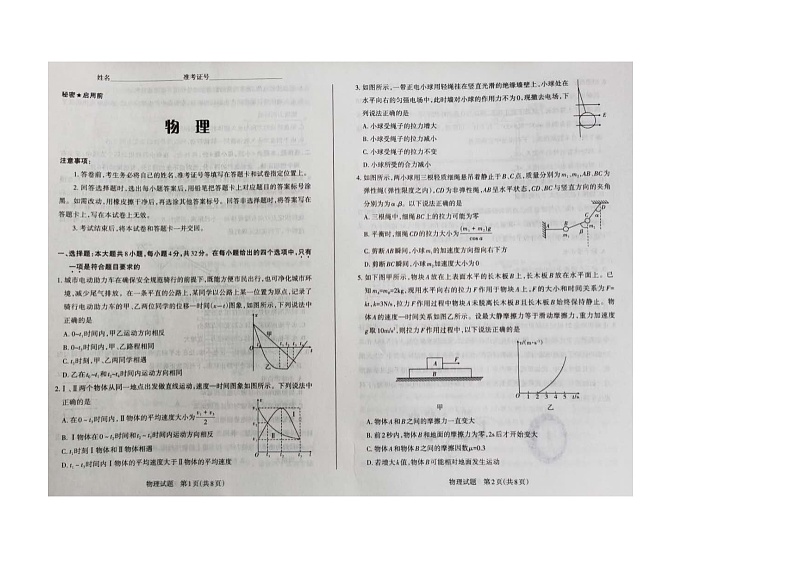 姓名 准考证号
秘密★启用前
物 理
注意事项:
1. 答卷前,考生务必将自己的姓名、准考证号等填写在答题卡和试卷指定位置上。
2. 回答选择题时,选出每小题答案后,用铅笔把答题卡上对应题目的答案标号涂
黑。如需改动,用橡皮擦干净后,再选涂其他答案标号。回答非选择题时,将答案写在
答题卡上,写在本试卷上无效。
3. 考试结束后,将本试卷和答题卡一并交回。
一、选择题:本大题共8小题,每小题4分,共32分。在每小题给出的四个选项中,只有
一项是符合题目要求的
1. 城市电动助力车在确保安全规范骑行的前提下,既能方便市民出行,也可净化城市环
境,减少尾气排放。在一条平直的公路上,某同学以公路上某一位置为原点,记录了
骑行电动助力车的甲、乙两位同学的位移一时间(x-t)图象,如图所示,下列说法中
正确的是
A. 0~t₁时间内,甲乙运动方向相反
B. 0~t₂时间内,甲、乙路程相同
C. t₃时刻,甲、乙两同学相遇
D. 乙在0~t₂和t₂时间内运动方向相同
甲
乙
2. Ⅰ、Ⅱ两个物体从同一地点出发做直线运动,速度一时间图象如图所示。下列说法中
正确的是
A. 在0~t₂时间内,Ⅱ物体的平均速度大小为(v₁+v₂)/2
B. Ⅰ物体在0~t₁时间和t₁~t₂时间内运动方向相反
C. t₂时刻Ⅰ物体和Ⅱ物体相遇
D. t₁~t₂时间内Ⅰ物体的平均速度大于Ⅱ物体的平均速度
Ⅰ
Ⅱ
物理试题 第1页(共8页)
3. 如图所示,一带正电小球用轻绳挂在竖直光滑的绝缘墙壁上,小球处在
水平向右的匀强电场中,此时墙对小球的作用力不为0,现撤去电场,下
列说法正确的是
A. 小球受绳子的拉力增大
B. 小球受绳子的拉力减小
C. 小球受绳子的拉力不变
D. 小球所受的合力减小
E
4. 如图所示,两小球用三根轻质细绳悬吊着静止于B、C点,质量分别为m₁、m₂,AB、BC为
弹性绳(弹性限度之内),CD为非弹性绳,AB呈水平状态,CD、BC与竖直方向的夹角
分别为为α、β。以下说法正确的是
A. 三根绳中,细绳BC上的拉力可能为零
B. 平衡时,细绳CD的拉力大小为(m₁+m₂)g/cosα
C. 剪断AB瞬间,小球m₁的加速度方向指向右下方
D. 剪断BC瞬间,小球m₂的加速度大小为0
A B C D
m₁ m₂ α β
5. 如下图甲所示,物块A放在上表面水平的长木板B上,长木板B放在水平面上。已
知mA=mB=2kg,现用水平向右的拉力F作用于物块A上,F的大小和时间关系为F=
kt,k=3N/s,拉力F作用过程中物块A未脱离长木板B且长木板B始终保持静止。物
体A的速度一时间关系如图乙所示。设最大静摩擦力等于滑动摩擦力,重力加速度
g取10m/s²,则拉力F作用过程中,以下说法正确的是
A F
B
甲
v/(m·s⁻¹)
0 1 2 3 4 5 t/s
乙
A. 物体A和B之间的摩擦力一直变大
B. 前2秒内,物体B和地面的摩擦力为零,2s后才开始变大
C. 物体A和B之间的摩擦因数μ=0.3
D. 若增大k值,物体B可能相对地面发生运动
物理试题 第2页(共8页)